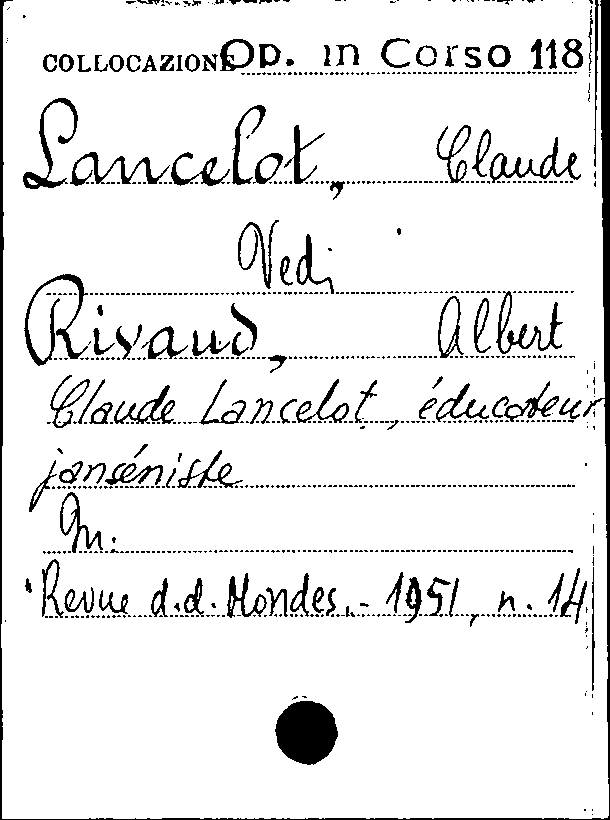 COLLOCAZIONE Op. in Corso 118
Lancelot, Claude
Vedi
Rivaud, Albert
Claude Lancelot, éducateur
janséniste
In:
Revue d.d. Mondes.- 1951, n. 14